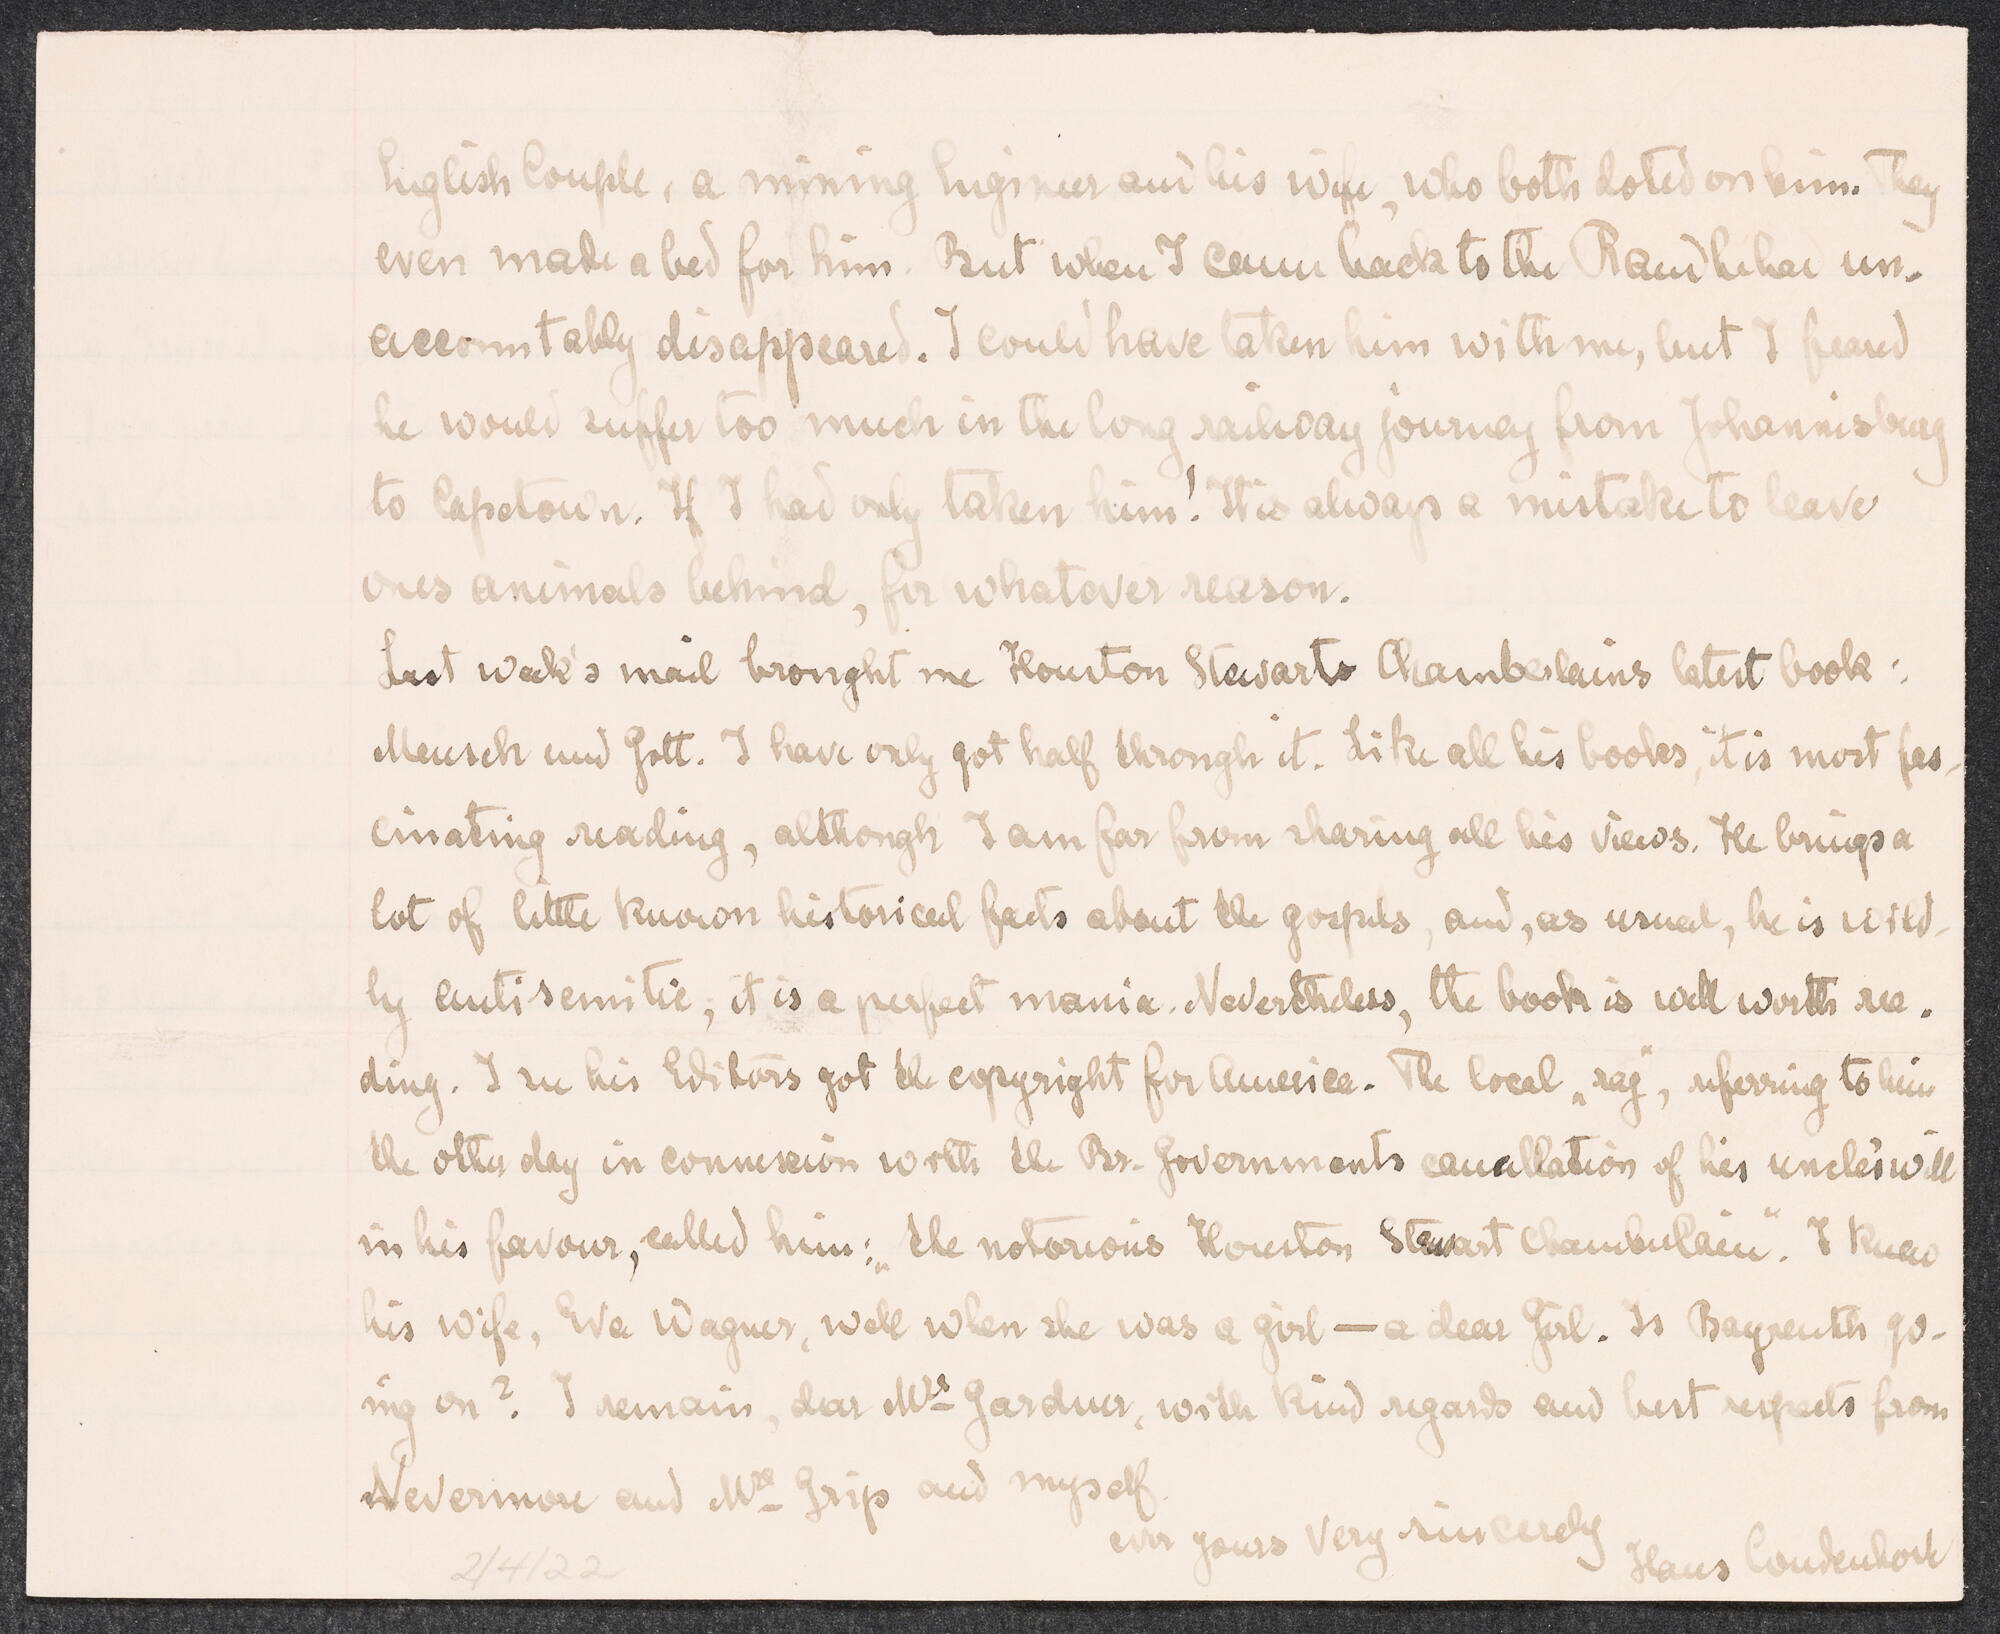 English Couple, a mining Engineer and his wife, who both doted on him. They
even made a bed for him. But when I came back to the Rand he had un-
accountably disappeared. I could have taken him with me, but I feared
he would suffer too much in the long railway journey from Johannisburg
to Capetown. If I had only taken him! It is always a mistake to leave
ones animals behind, for whatever reason.
Last week's mail brought me Houston Stewarts Chamberlains latest book:
Mensch und Gott. I have only got half through it. Like all his books, it is most fas-
cinating reading, although I am far from sharing all his views. He brings a
lot of little known historical facts about the gospels, and, as usual, he is wild-
ly antisemitic; it is a perfect mania. Nevertheless, the book is well worth rea-
ding. I see his Editors got the copyright for America. The local „rag“, referring to him
the other day in connexion with the Br. Governments cancellation of his uncle's will
in his favour, called him: „the notorious Houston Stewart Chamberlain“. I knew
his wife, Eva Wagner, well when she was a girl — a dear Girl. Is Bayreuth go-
ing on? I remain, dear Mrs Gardner, with kind regards and best respects from
Nevermore and Mrs Grip and myself.
ever yours very sincerely
Hans Coudenhove
2/4/22